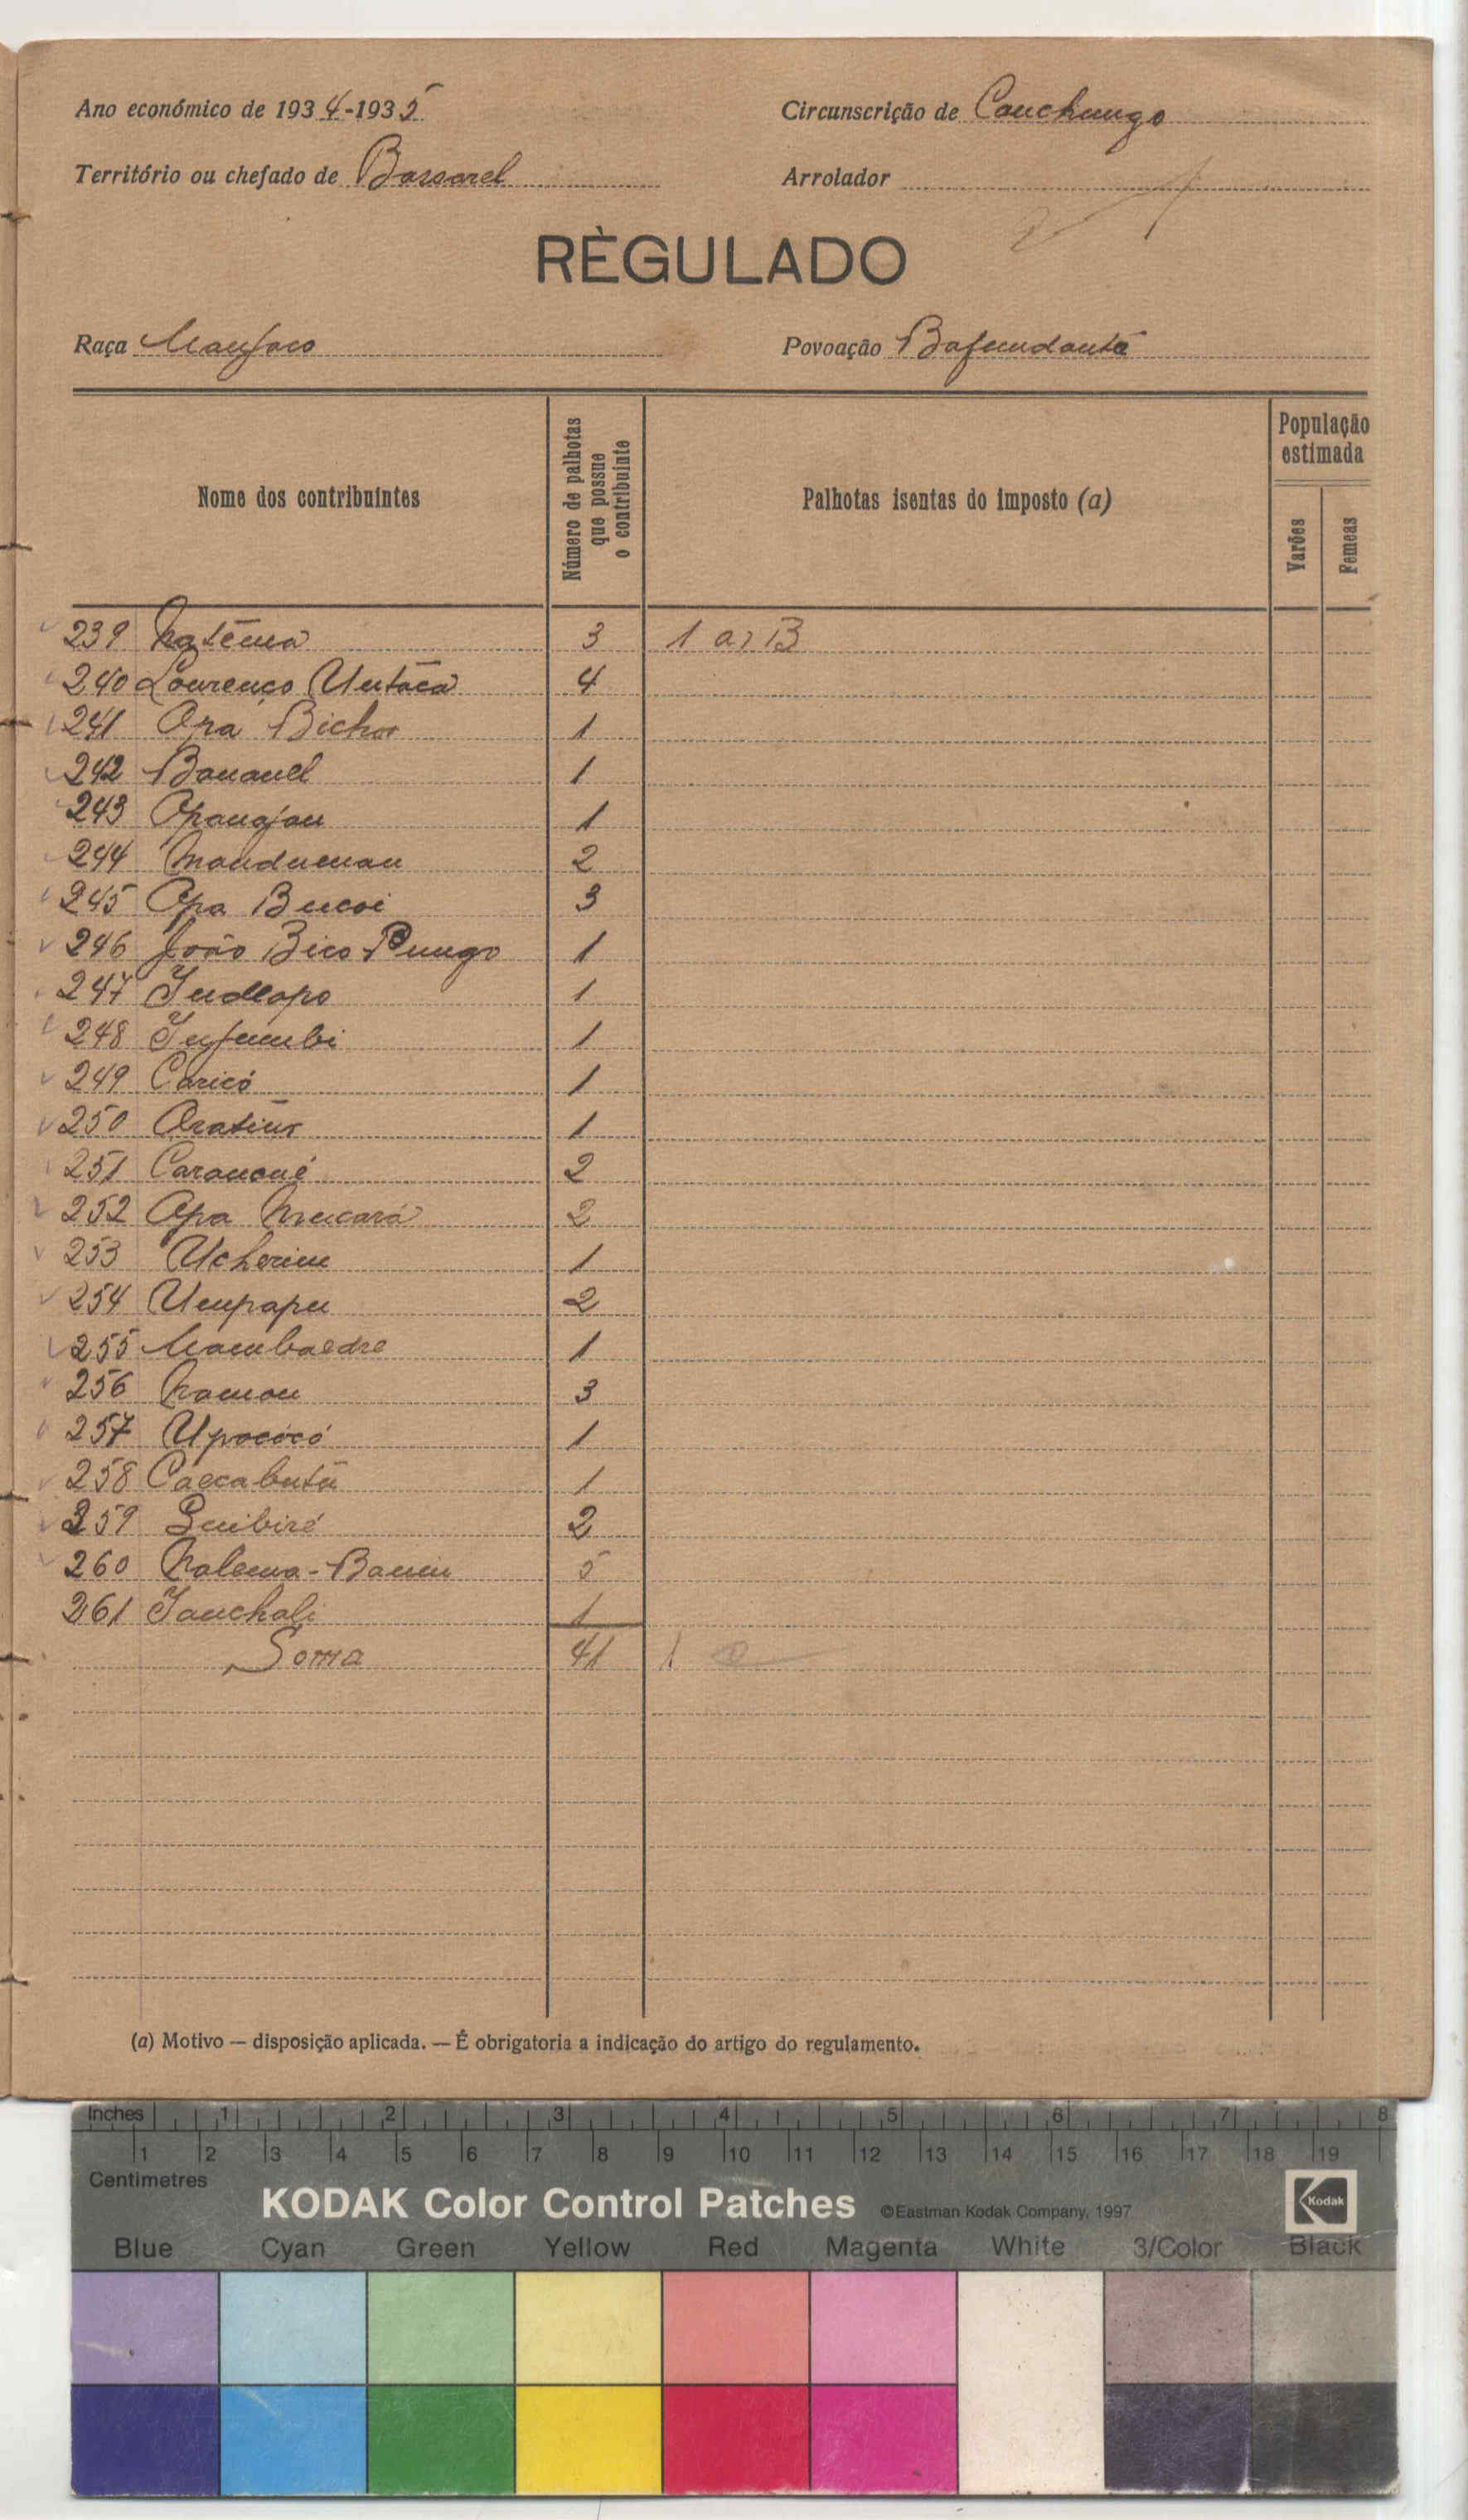 Ano económico de 1934-1935 Circunscrição de Canchungo
Território ou chefado de Bassarel Arrolador
RÈGULADO
Raça Manjaco Povoação Bafundantá
Nome dos contribuintes
Número de palhotas que possue o contribuinte
Palhotas isentas do imposto (a)
População estimada
Varões
Femeas
239 3 1 a) B
240 Lourenço Untáca 4
241 Ora Bichor 1
242 Bananel 1
243 Apanajan 1
244 Nanduman 2
245 Apa Bucoi 3
246 João Bico Pungo 1
247 Indlapo 1
248 Infumbi 1
249 Caricó 1
250 1
251 Caranoné 2
252 Apa 2
253 Ucherim 1
254 Umpapu 2
255 1
256 Naman 3
257 Upococó 1
258 1
259 Quibiré 2
260 5
261 Ianchali 1
Soma 41 1
(a) Motivo — disposição aplicada. — É obrigatoria a indicação do artigo do regulamento.
Inches 1 2 3 4 5 6 7 8
1 2 3 4 5 6 7 8 9 10 11 12 13 14 15 16 17 18 19
Centimetres
KODAK Color Control Patches ©Eastman Kodak Company, 1997 Kodak
Blue Cyan Green Yellow Red Magenta White 3/Color Black